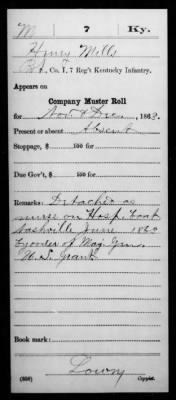 M 7 Ky.
Henry Mills
Pvt., Co. I, 7 Reg't Kentucky Infantry.
Appears on
Company Muster Roll
for Nov & Dec, 1863.
Present or absent Absent
Stoppage, $ 100 for
Due Gov't, $ 100 for
Remarks: Detached as
nurse on Hosp. boat
Nashville June 1863
by order of Maj. Gen.
U. S. Grant
Book mark:
Lowry
(358) Copyist.